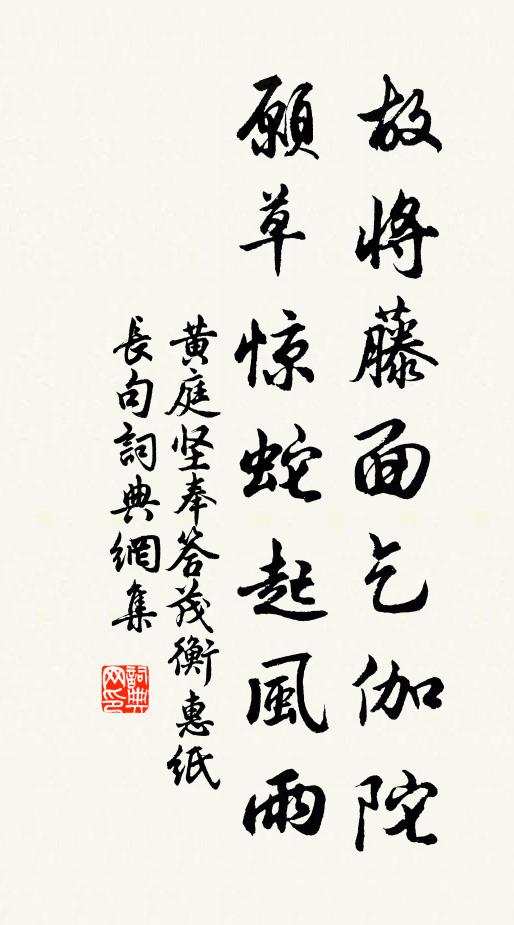 故将藤面乞伽陀
願草惊蛇起風雨
黄庭坚奉答茂衡惠紙
長句詞典網集
詞典网印